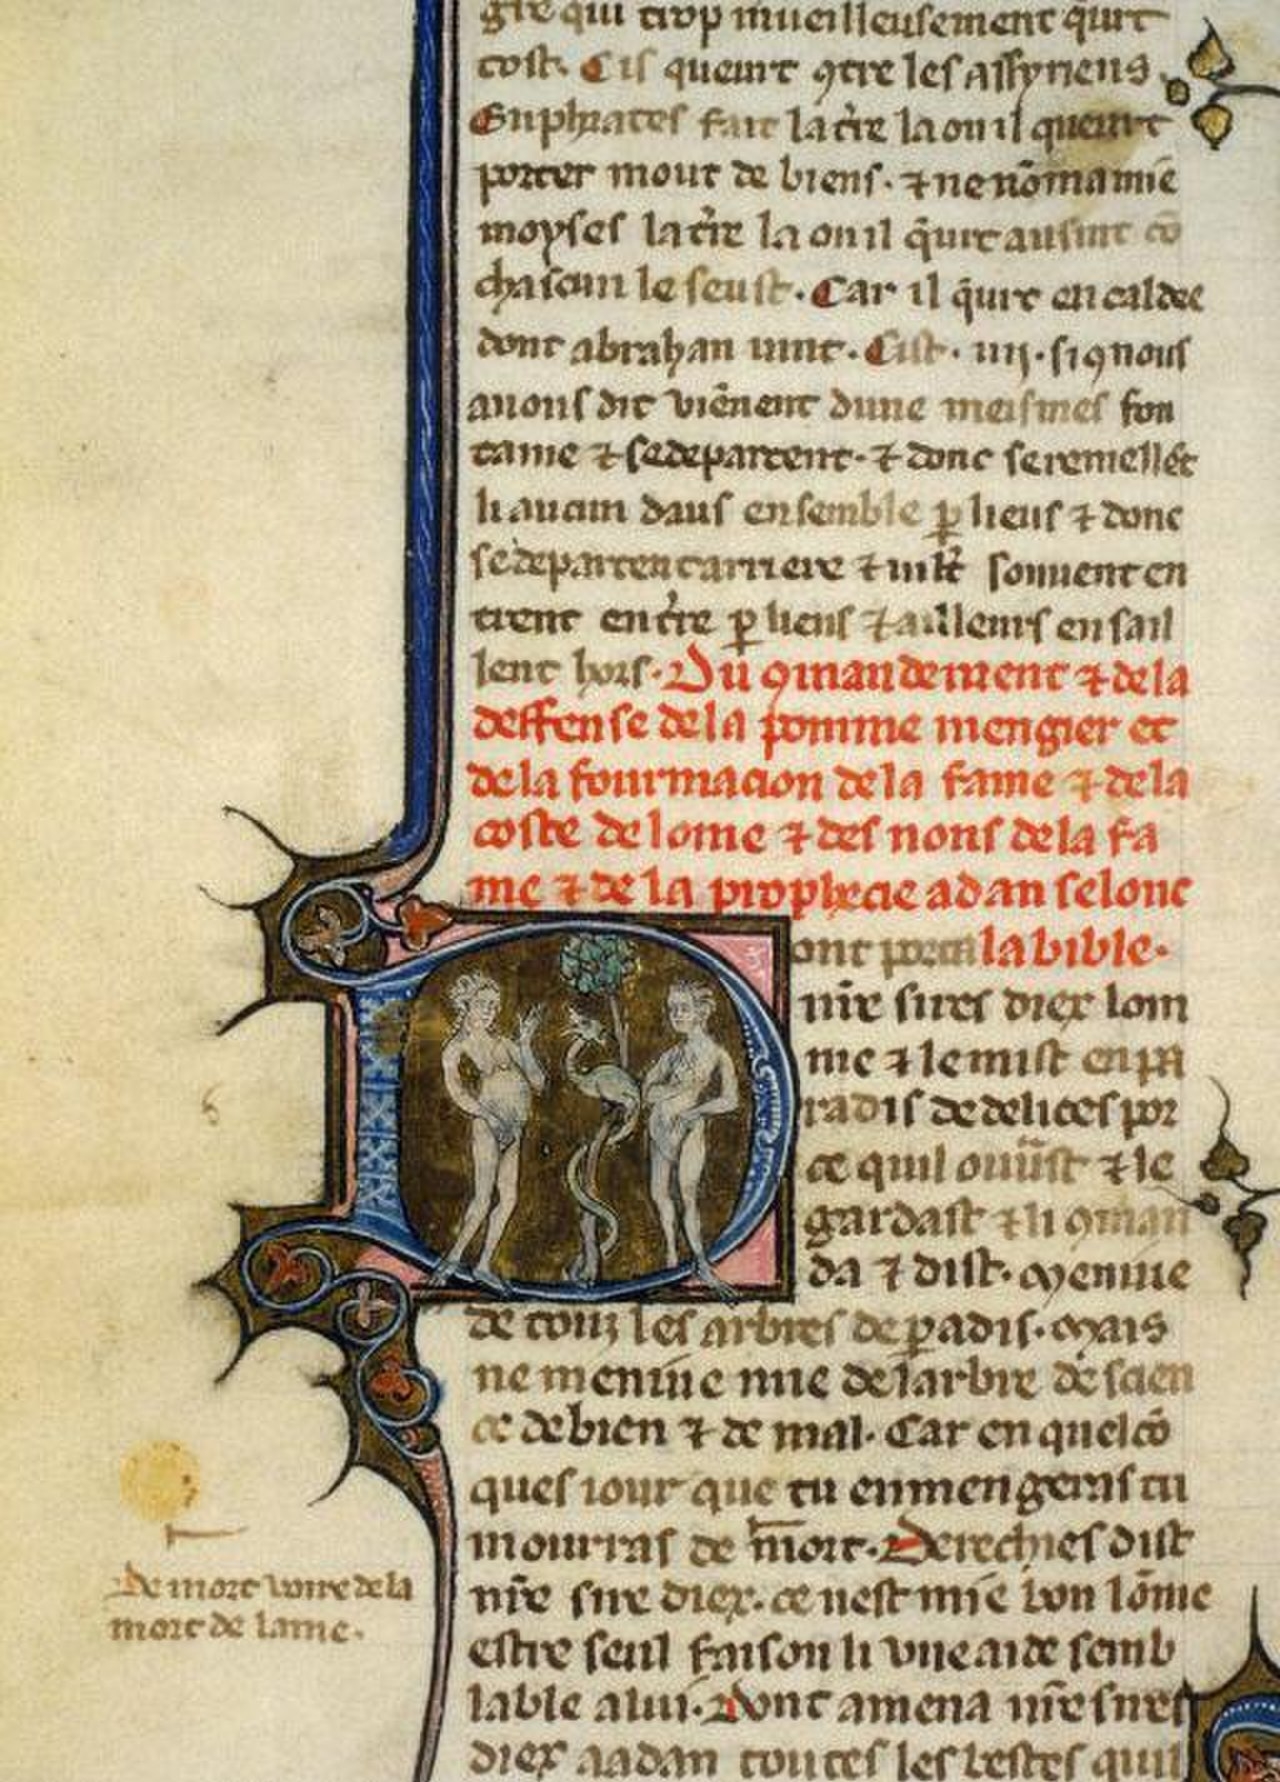 gre qui trop mueilleusement q̄urt
tost. Cis queurt ꝯtre les assyriens.
Euphrates fait la t̄re la ou il queurt
porter mout de biens. ⁊ ne nōma mie
moyses la t̄re la ou il q̄urt ausint cō
chascun le seust. Car il q̄urt en caldee
dont abrahan uint. Cist. iiij. si ꝯ nous
auons dit viēnent dune meismes fon
taine ⁊ se departent. ⁊ donc se remellēt
li aucun daus ensemble ꝑ lieus ⁊ donc
se departent arriere ⁊ souuent en
trent en t̄re ꝑ lieus ⁊ ailleurs en sail
lent hors. Du ꝯmandement ⁊ de la
deffense de la pomme mengier et
de la fourmacion de la fame ⁊ de la
coste de lome ⁊ des nons de la fa
me ⁊ de la prophecie adan selonc
la bible.
Dont porta
nr̄e sires diex lom
me ⁊ le mist en pa
radis de delices por
ce quil ouurast ⁊ le
gardast ⁊ li ꝯman
da ⁊ dist. Meniue
de touz les arbres de ꝑadis. Mais
ne meniue mie de larbre de scien
ce de bien ⁊ de mal. Car en quelcō
ques iour que tu en mengeras tu
mourras de mort. Derechies dist
nr̄e sire diex. ce nest mie bon lōme
estre seul faison li vne aide semb
lable a lui. Dont amena nr̄e sires
diex a adan toutes les bestes quil
De mort voire de la
mort de lame.